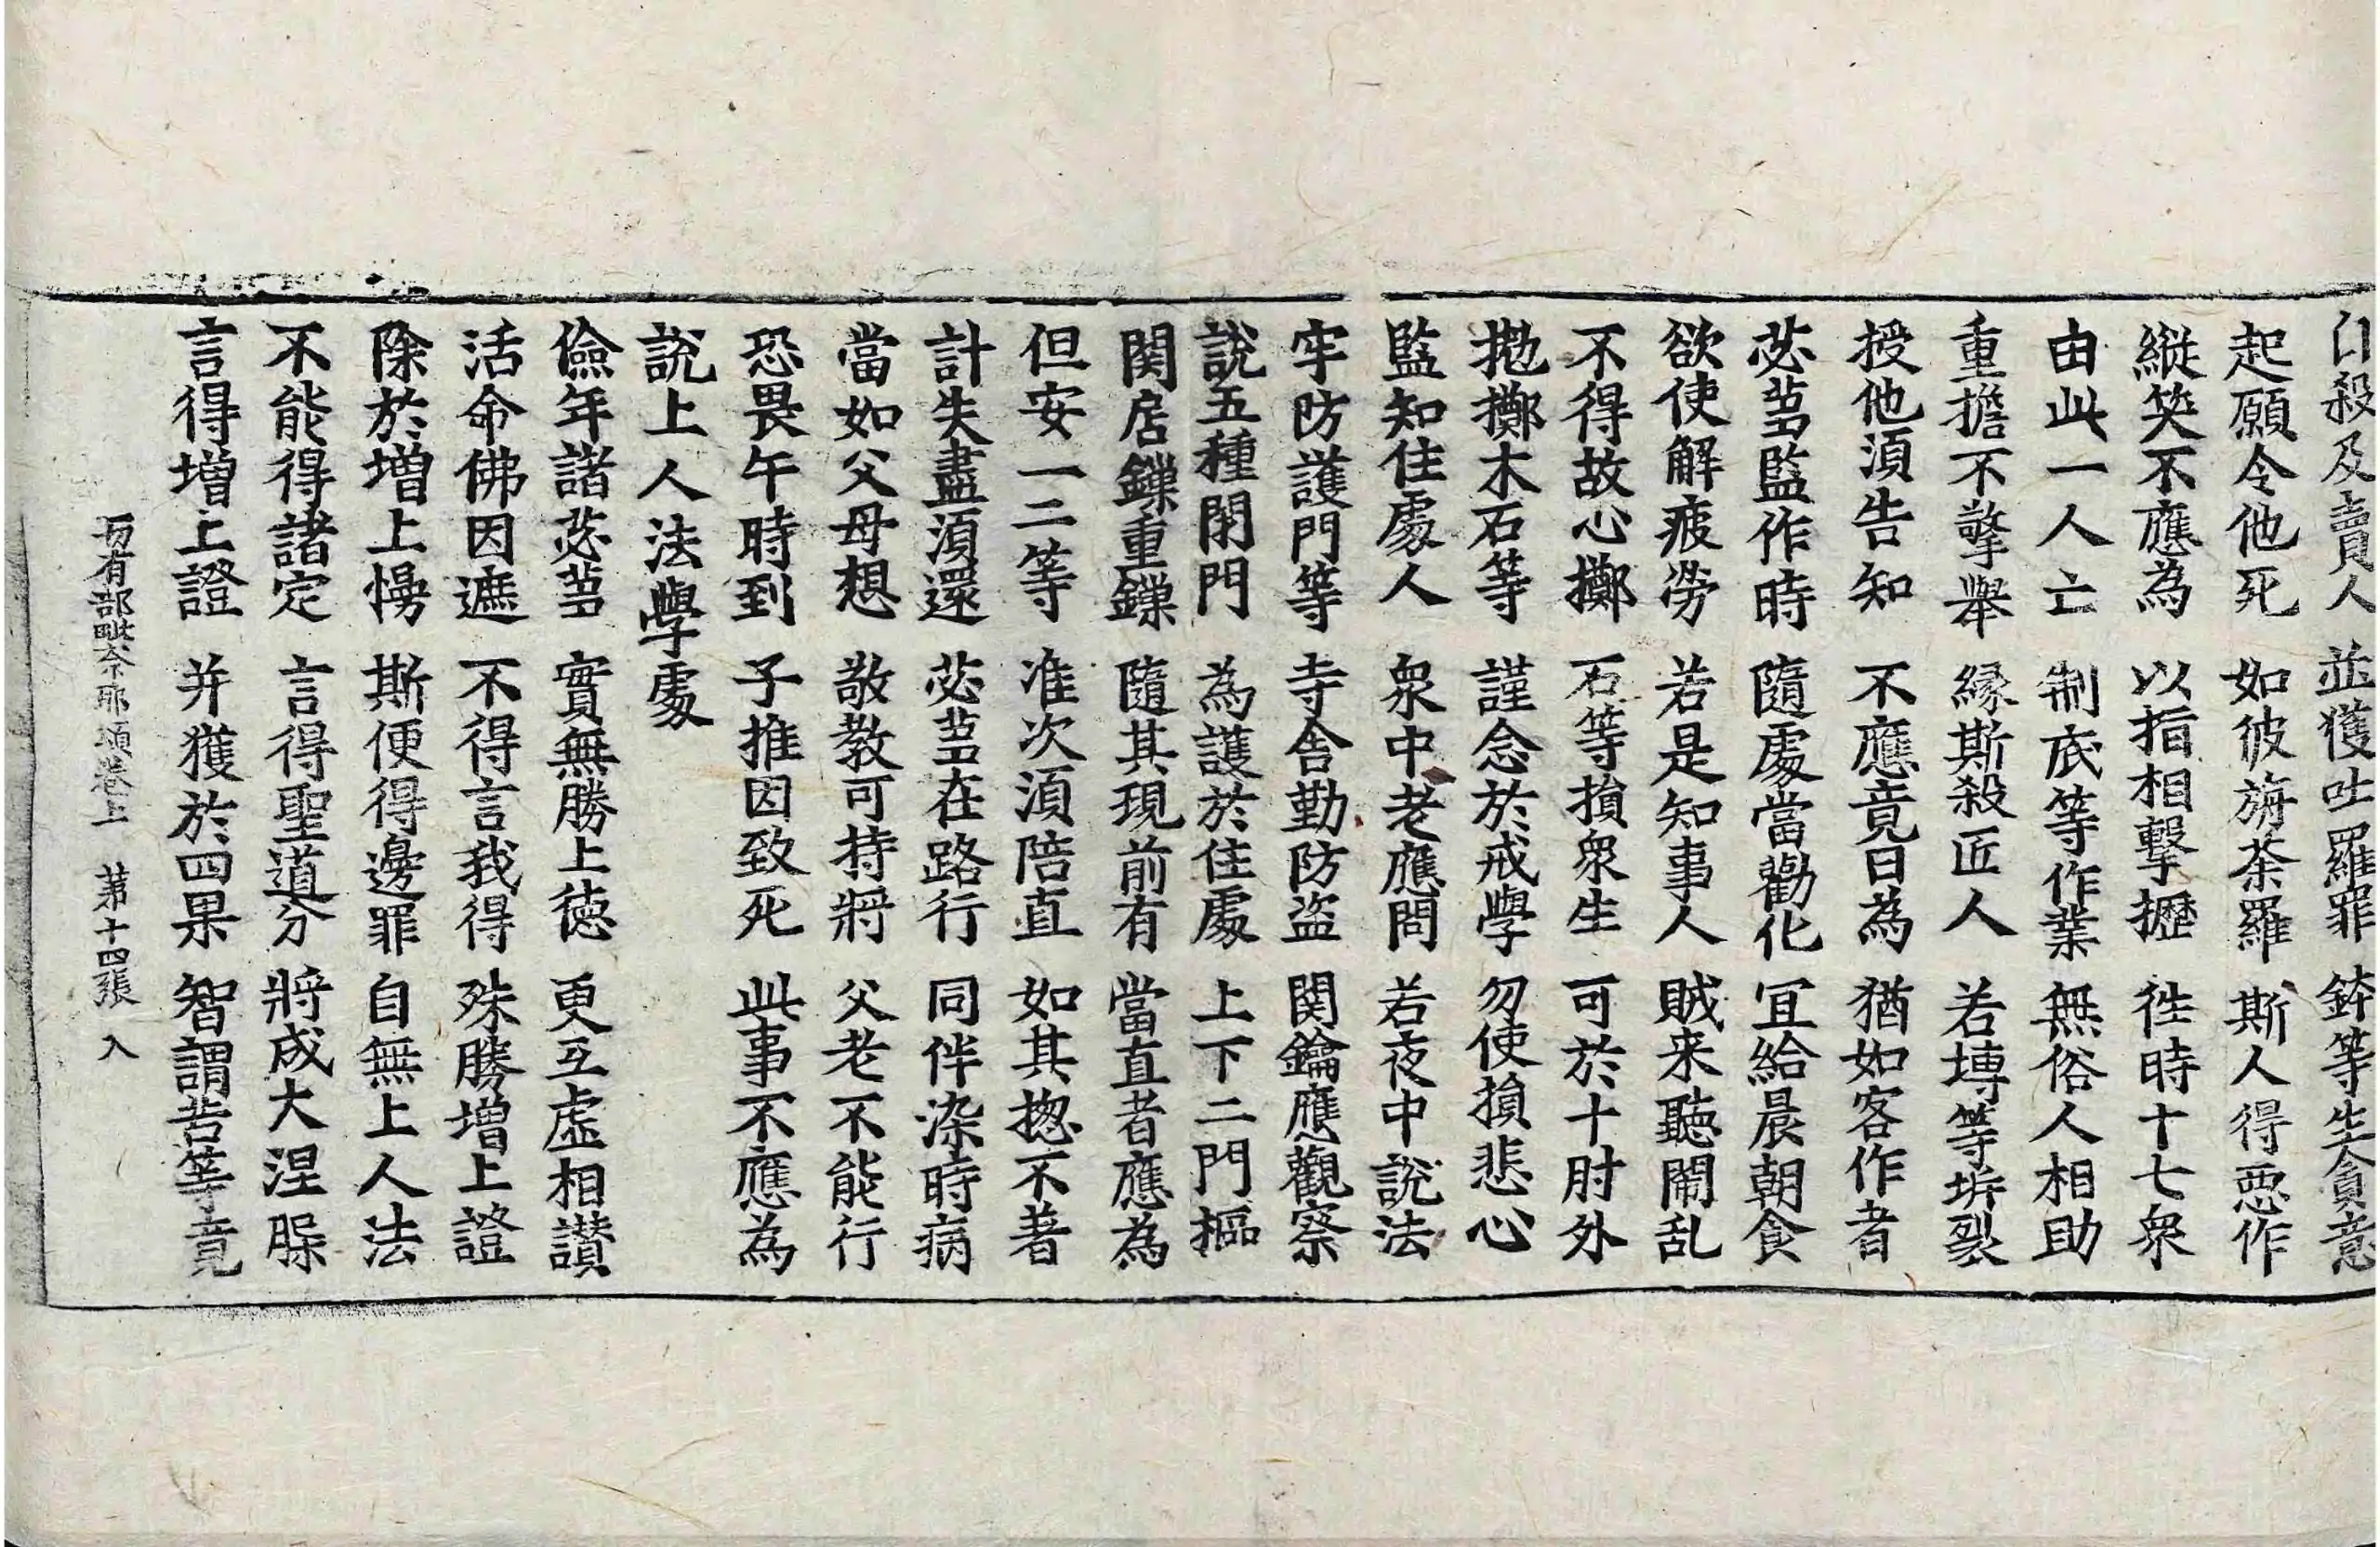 自殺及賣人 並獲吐羅罪 鉢等生貪意
起願令他死 如彼旃荼羅 斯人得惡作
縱笑不應為 以指相擊攊 徃時十七衆
由此一人亡 制底等作業 無俗人相助
重擔不擎舉 緣斯殺匠人 若塼等坼裂
授他須告知 不應竟日為 猶如客作者
苾芻監作時 隨處當勸化 冝給晨朝食
欲使解疲勞 若是知事人 賊来聽鬧乱
不得故心擲 石等損衆生 可於十肘外
拋擲木石等 謹念於戒學 勿使損悲心
監知住處人 衆中老應問 若夜中說法
牢防護門等 寺舍勤防盜 関鑰應觀察
說五種閉門 為護於住處 上下二門樞
関居鏁重鏁 隨其現前有 當直者應為
但安一二等 准次須陪直 如其揔不著
計失盡須還 苾芻在路行 同伴染時病
當如父母想 敬教可持將 父老不能行
恐畏午時到 子推因致死 此事不應為
說上人法學處
儉年諸苾芻 實無勝上德 更互虛相讃
活命佛因遮 不得言我得 殊勝增上證
除於增上慢 斯便得邊罪 自無上人法
不能得諸定 言得聖道分 將成大涅槃
言得增上證 并獲於四果 智謂苦等竟
一切有部毗奈耶頌卷上 第十四張 入